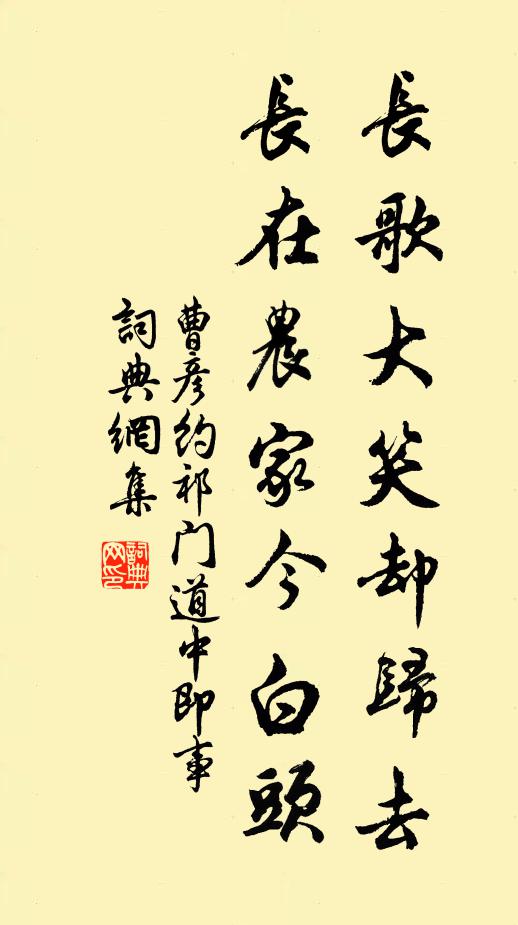 長歌大笑却歸去
長在農家今白頭
曹彦約祁门道中即事
詞典網集
詞典网印